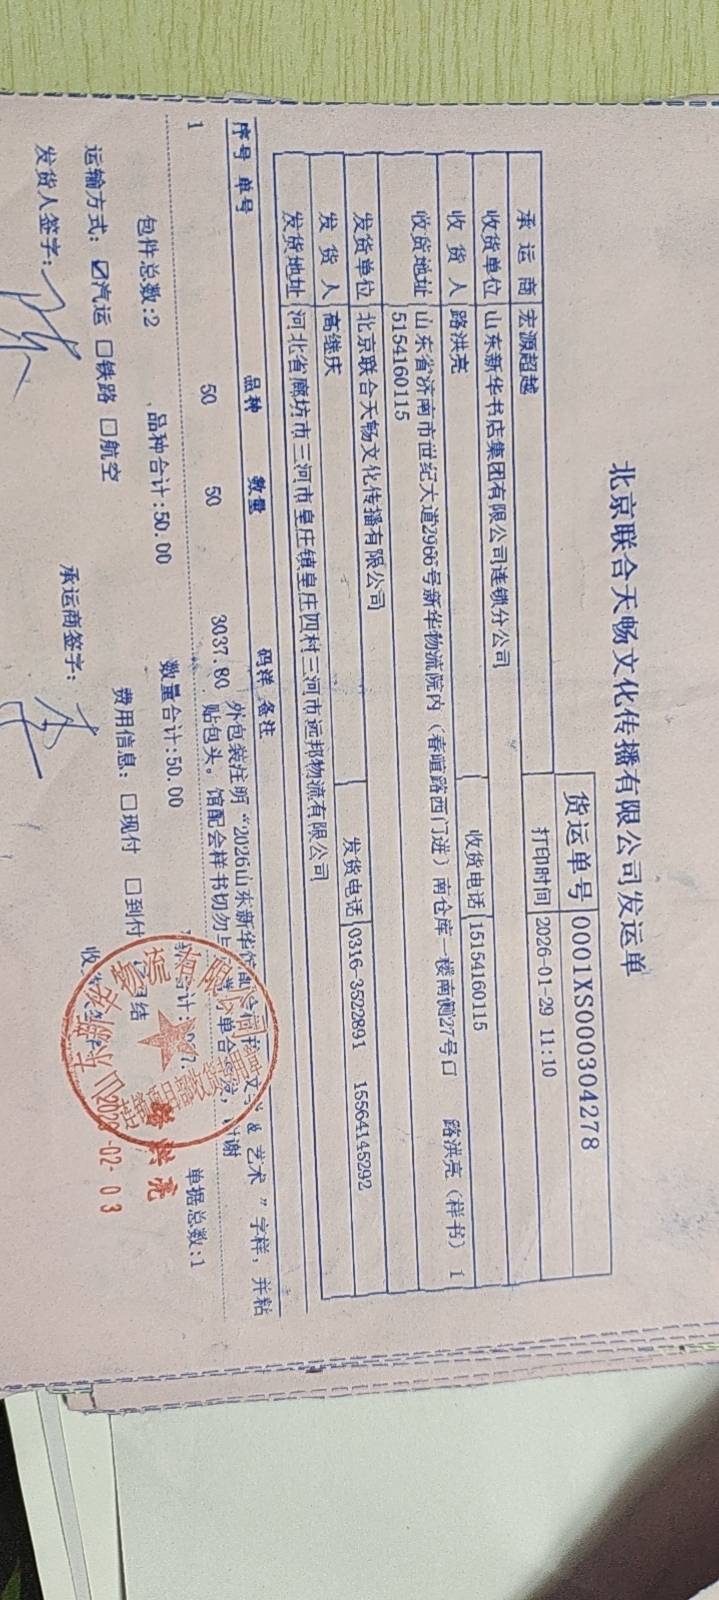 北京联合天畅文化传播有限公司发运单
货运单号 0001XS000304278
承运商 宏源超越 打印时间 2026-01-29 11:10
收货单位 山东新华书店集团有限公司连锁分公司
收货人 路洪亮 收货电话 15154160115
收货地址 山东省济南市世纪大道2966号新华物流院内（春暄路西门进）南仓库一楼南侧27号口 路洪亮（样书）1
5154160115
发货单位 北京联合天畅文化传播有限公司
发货人 高继庆 发货电话 0316-3522891 15564145292
发货地址 河北省廊坊市三河市皇庄镇皇庄四村三河市远邦物流有限公司
序号 单号 品种 数量 码洋 备注
1 50 50 3037.80 外包装注明“2026山东新华馆配 艺术”字样，并粘
贴包头。馆配会样书切勿与 单合 谢
包件总数:2 品种合计:50.00 数量合计:50.00 单据总数:1
运输方式: ☑汽运 □铁路 □航空 费用信息: □现付 □到付 月结
发货人签字: 承运商签字:
山东新华物流有限公司
路洪亮
2026-02-03